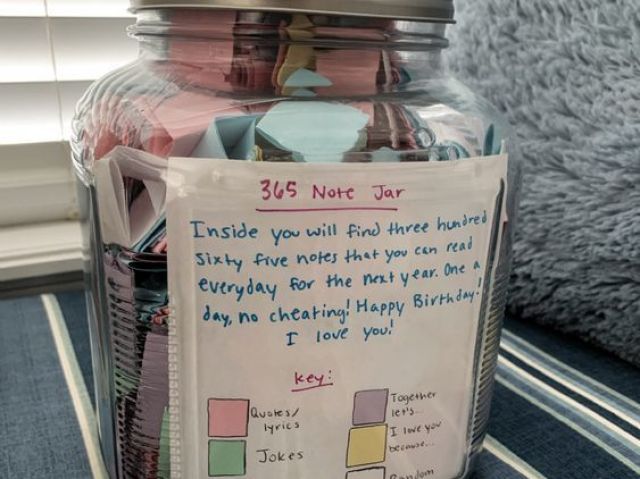 365 Note Jar
Inside you will find three hundred
sixty five notes that you can read
everyday for the next year. One a
day, no cheating! Happy Birthday!
I love you!
Key:
Quotes/
lyrics
Jokes
Together
let's...
I love you
because...
Random